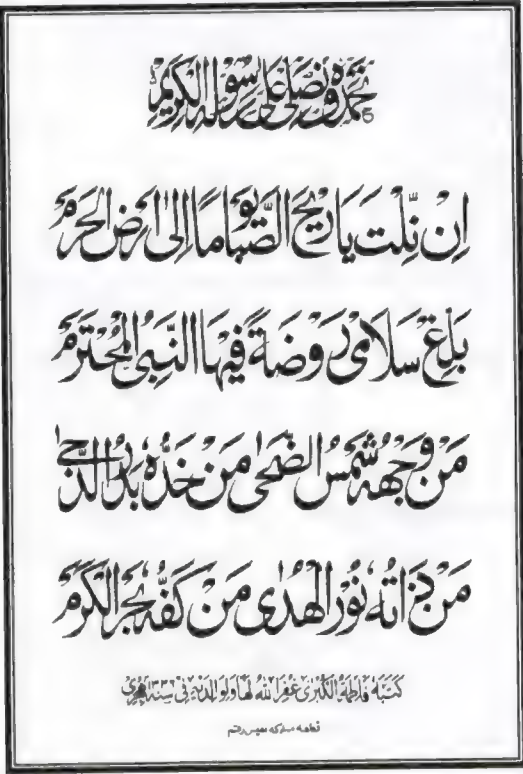 نحمده ونصلى على رسوله الكريم
اِنْ نِّلْتَ يَا رِيْحَ الصَّبَا يَوْمًا اِلٰى اَرْضِ الْحَرَمْ
بَلِّغْ سَلَامِىْ رَوْضَةً فِيْهَا النَّبِىُّ الْمُحْتَرَمْ
مَنْ وَجْهُهٗ شَمْسُ الضُّحٰى مَنْ خَدُّهٗ بَدْرُ الدُّجٰى
مَنْ ذَاتُهٗ نُوْرُ الْهُدٰى مَنْ كَفُّهٗ بَحْرُ الْكَرَمْ
كتبته فاطمة الكبرىٰ غفر الله لها ولوالديها فى سنة هجرى